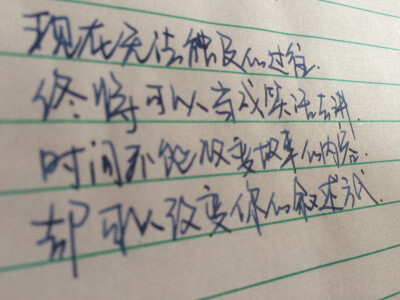 现在无法触及的过往.
终将可以当成笑话去讲.
时间不能改变故事的内容.
却可以改变你的叙述方式.